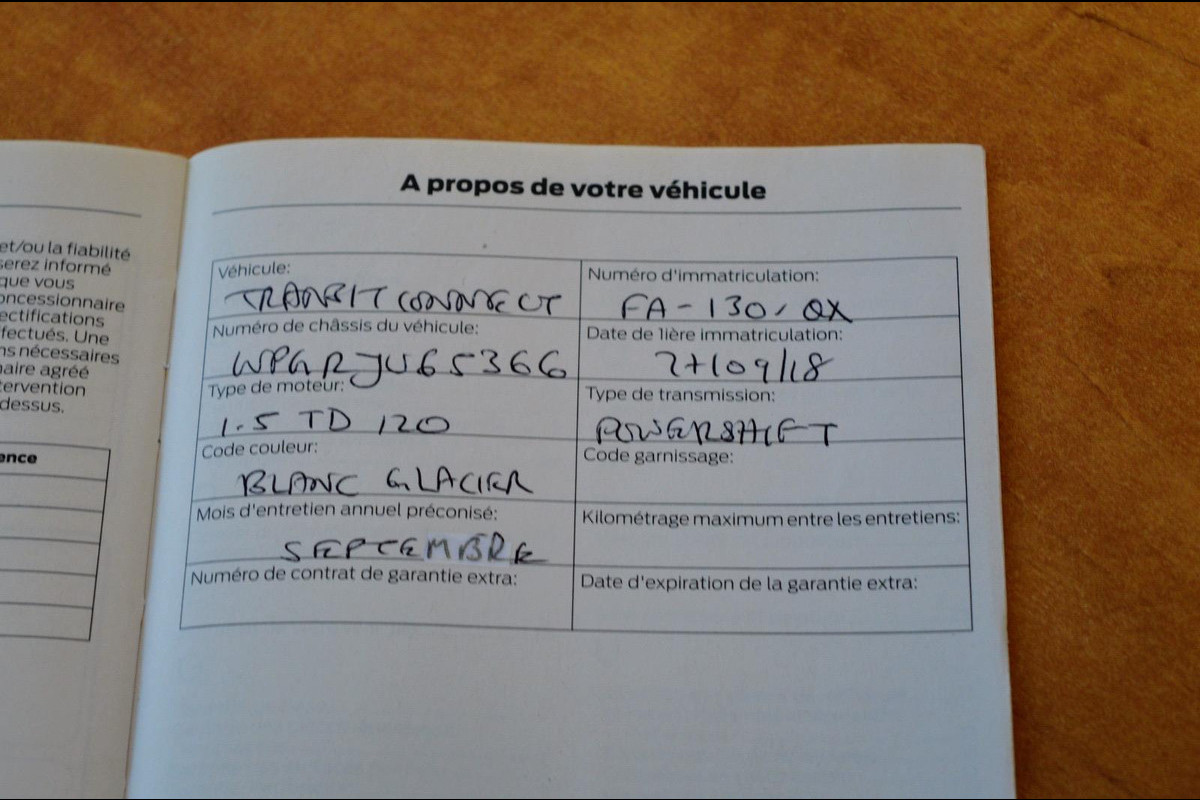 et/ou la fiabilité
serez informé
que vous
oncessionnaire
ectifications
fectués. Une
ns nécessaires
naire agréé
tervention
dessus.
ence
A propos de votre véhicule
Véhicule:
TRANSIT CONNECT
Numéro d'immatriculation:
FA-130-QX
Numéro de châssis du véhicule:
WPGRJU65366
Date de 1ière immatriculation:
27/09/18
Type de moteur:
1.5 TD 120
Type de transmission:
POWERSHIFT
Code couleur:
BLANC GLACIER
Code garnissage:
Mois d'entretien annuel préconisé:
SEPTEMBRE
Kilométrage maximum entre les entretiens:
Numéro de contrat de garantie extra:
Date d'expiration de la garantie extra: